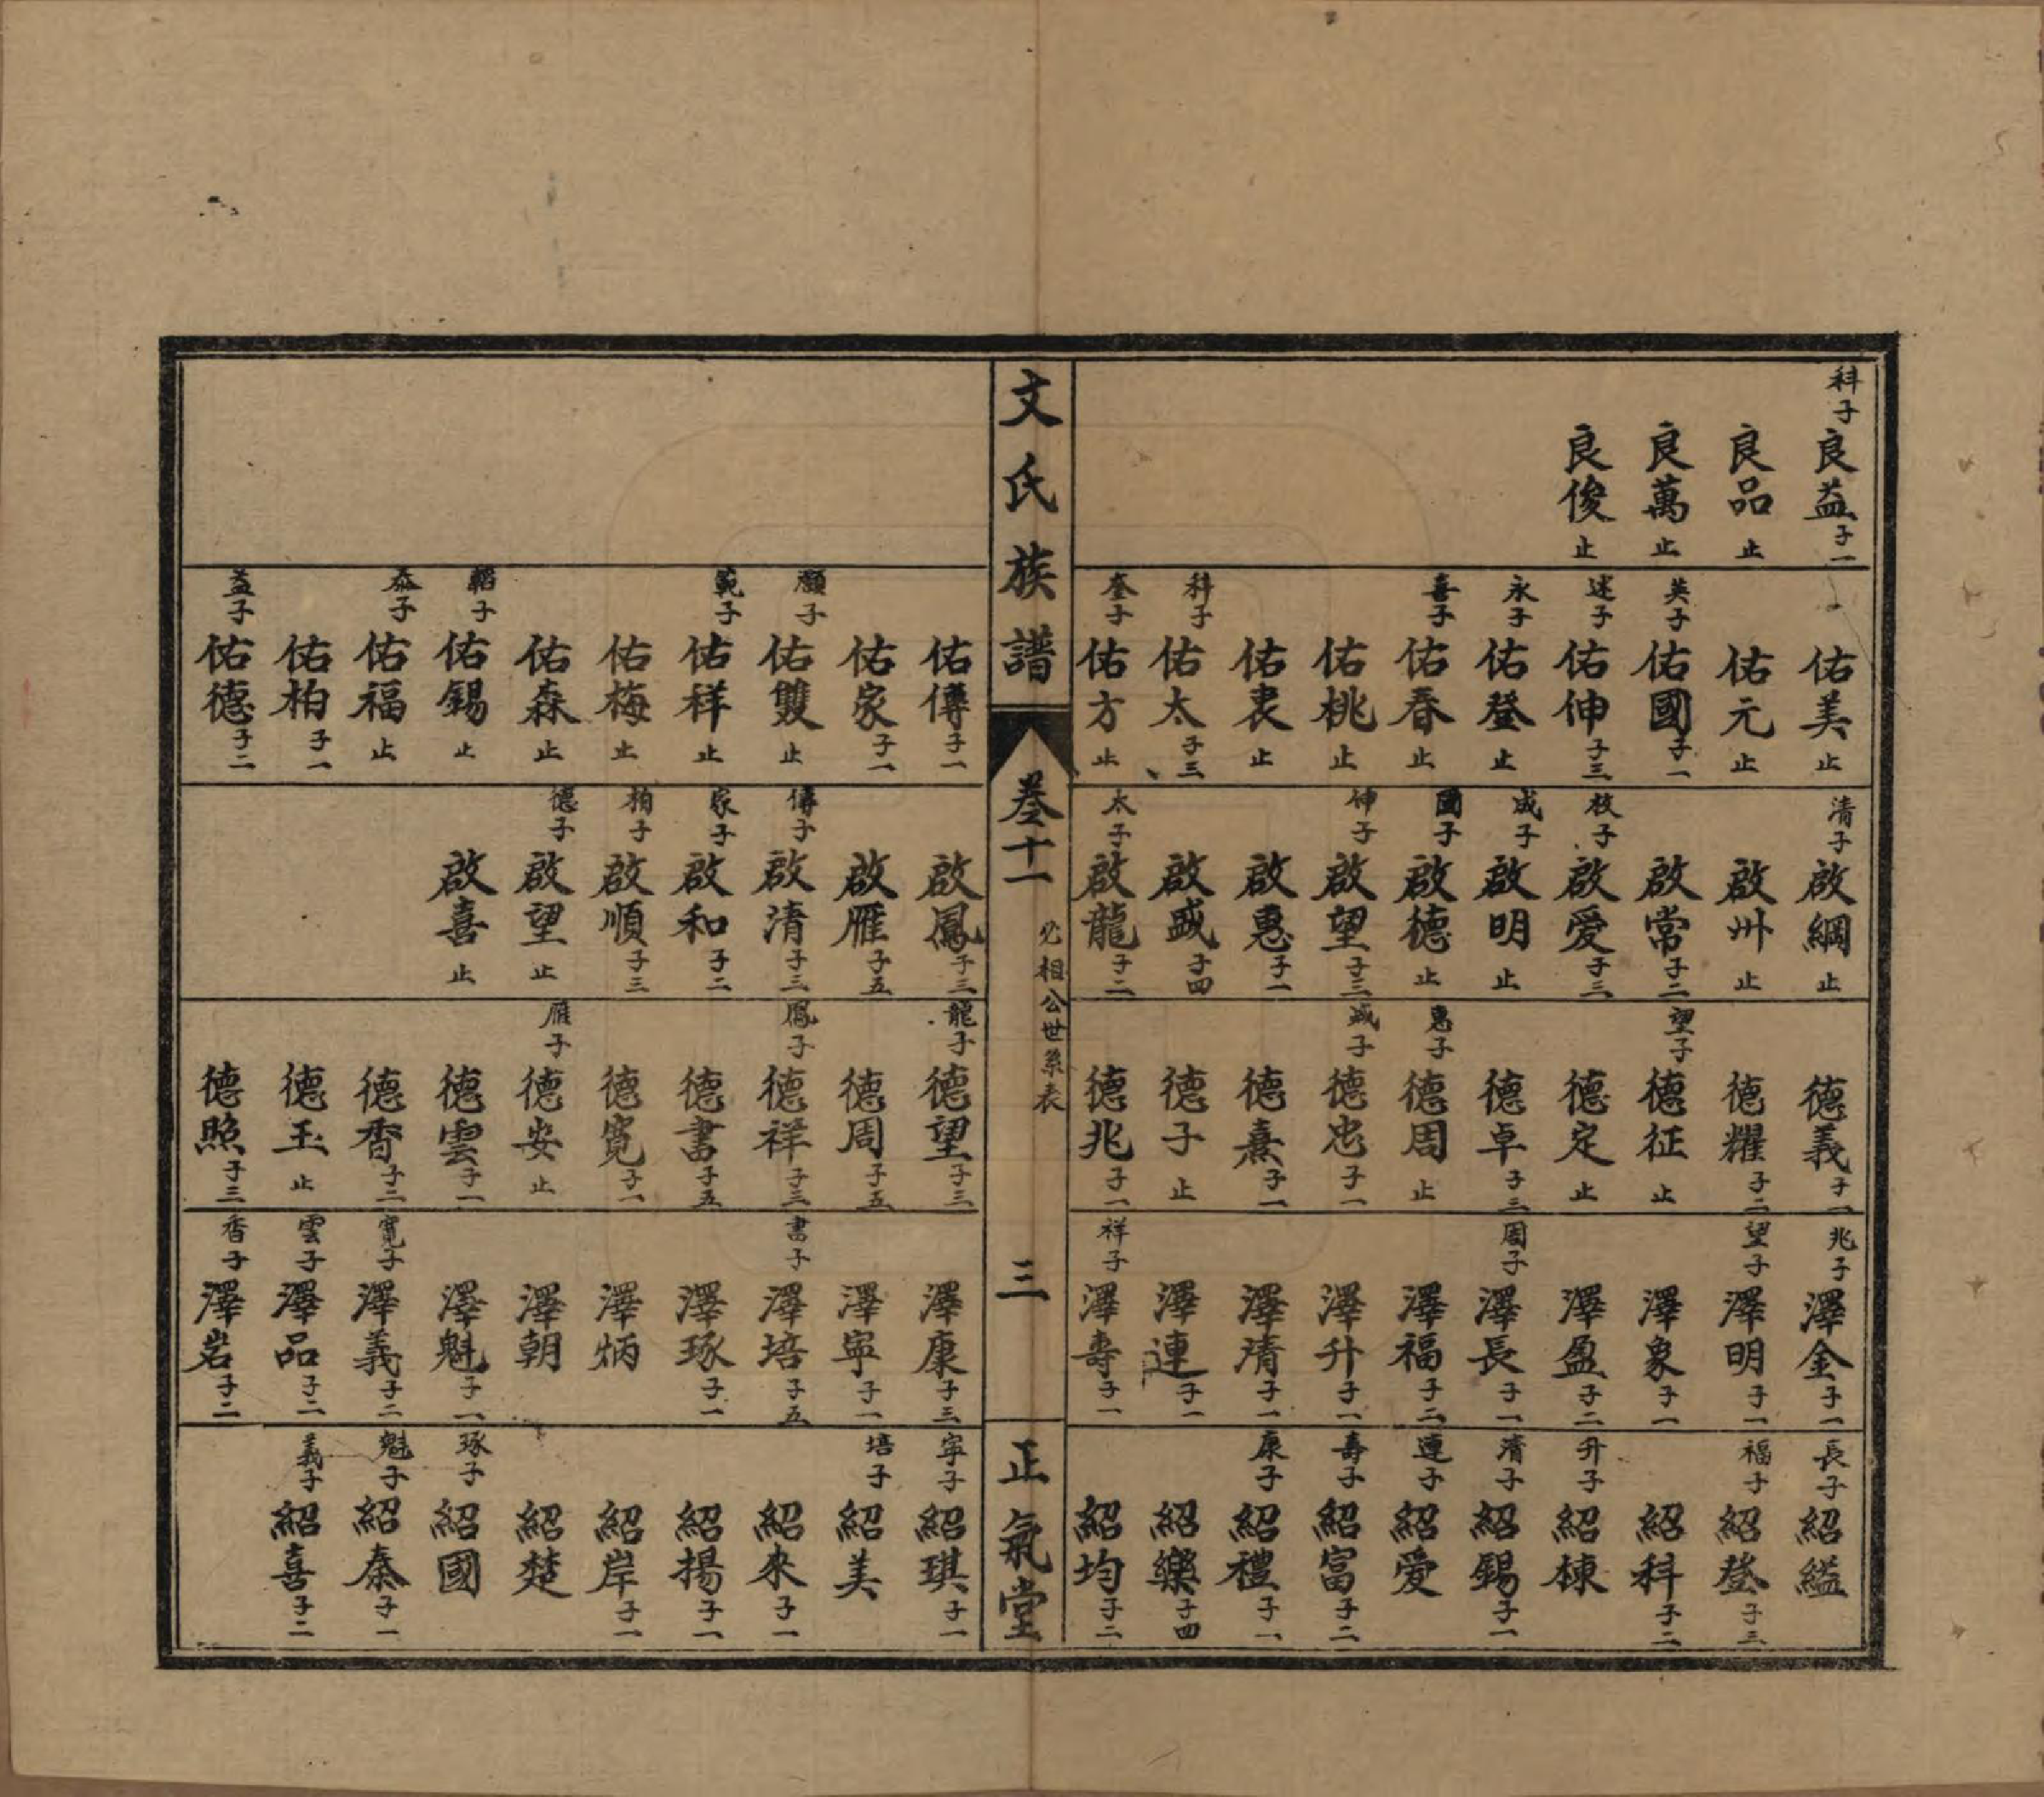 科子良益子一
良品止
良萬止
良俊止
佑美止
佑元止
英子佑國子一
述子佑伸子三
永子佑登止
喜子佑春止
佑桃止
佑衷止
科子佑太子三
奎子佑方止
清子啟綱止
啟州止
啟常子二
枚子啟愛子三
成子啟明止
國子啟德止
伸子啟望子三
啟惠子一
啟盛子四
太子啟龍子二
德義子一
德耀子二
望子德征止
德定止
德卓子三
惠子德周止
盛子德忠子一
德熹子一
德子止
德兆子一
兆子澤金子一
望子澤明子一
澤象子一
澤盈子二
周子澤長子一
澤福子二
澤升子一
澤清子一
澤連子一
祥子澤壽子一
長子紹縊
福子紹登子三
紹科子二
升子紹棟
清子紹錫子一
連子紹愛
壽子紹富子二
康子紹禮子一
紹樂子四
紹均子二
文氏族譜
卷十一
必相公世系表
三
正氣堂
佑傳子一
佑家子一
顯子佑雙止
範子佑祥止
佑梅止
佑森止
韜子佑錫止
泰子佑福止
佑柏子一
益子佑德子二
啟鳳子三
啟雁子五
傳子啟清子三
家子啟和子二
柏子啟順子三
德子啟望止
啟喜止
龍子德望子三
德周子五
鳳子德祥子三
德書子五
德寬子一
雁子德安止
德雲子一
德香子二
德玉止
德照子三
澤康子三
澤寧子一
書子澤培子五
澤琢子一
澤炳
澤朝
澤魁子一
寬子澤義子二
雲子澤品子二
香子澤岩子二
寧子紹琪子一
培子紹美
紹來子一
紹揚子一
紹岸子一
紹楚
琢子紹國
魁子紹秦子一
義子紹喜子二